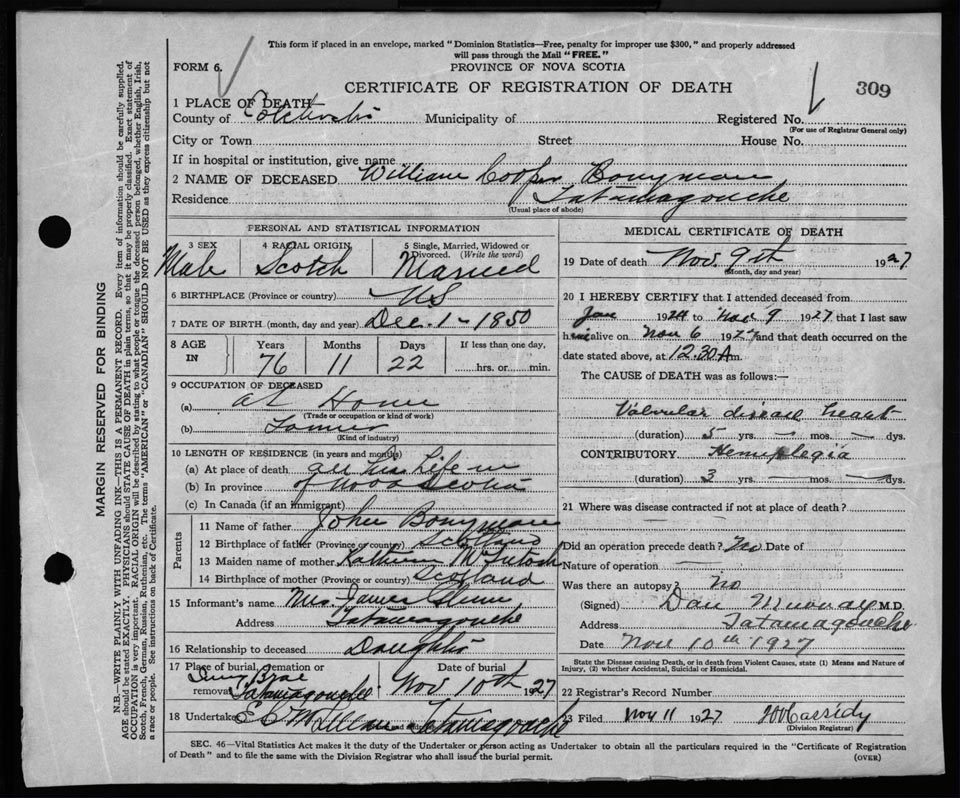 This form if placed in an envelope, marked "Dominion Statistics—Free, penalty for improper use $300," and properly addressed
will pass through the Mail "FREE."
FORM 6.
PROVINCE OF NOVA SCOTIA
CERTIFICATE OF REGISTRATION OF DEATH
309
1 PLACE OF DEATH
County of Colchester Municipality of Registered No.
(For use of Registrar General only)
City or Town Street House No.
If in hospital or institution, give name
2 NAME OF DECEASED William Cooper Bonyman
Residence Tatamagouche
(Usual place of abode)
PERSONAL AND STATISTICAL INFORMATION
3 SEX 4 RACIAL ORIGIN 5 Single, Married, Widowed or Divorced. (Write the word)
Male Scotch Married
6 BIRTHPLACE (Province or country) NS
7 DATE OF BIRTH (month, day and year) Dec. 1 - 1850
8 AGE IN Years Months Days If less than one day,
76 11 22 hrs. or min.
9 OCCUPATION OF DECEASED
(a) at Home
(Trade or occupation or kind of work)
(b)
(Kind of industry)
10 LENGTH OF RESIDENCE (in years and months)
(a) At place of death all his Life in
(b) In province of Nova Scotia
(c) In Canada (if an immigrant)
Parents
11 Name of father John Bonyman
12 Birthplace of father (Province or country) Scotland
13 Maiden name of mother McIntosh
14 Birthplace of mother (Province or country) Scotland
15 Informant's name Mrs. James
Address Tatamagouche
16 Relationship to deceased Daughter
17 Place of burial, cremation or removal Date of burial
Brae
Tatamagouche Nov 10th 1927
18 Undertaker Tatamagouche
MEDICAL CERTIFICATE OF DEATH
19 Date of death Nov. 9th 1927
(Month, day and year)
20 I HEREBY CERTIFY that I attended deceased from
Jan 1924 to Nov 9 1927 that I last saw
him alive on Nov 6 1927 and that death occurred on the
date stated above, at 12.30 A m.
The CAUSE of DEATH was as follows:—
Valvular disease heart
(duration) 5 yrs. — mos. — dys.
CONTRIBUTORY Hemiplegia
(duration) 3 yrs. — mos. — dys.
21 Where was disease contracted if not at place of death?
Did an operation precede death? No Date of
Nature of operation
Was there an autopsy? No
(Signed) Dan Murray M.D.
Address Tatamagouche
Date Nov 10th 1927
State the Disease causing Death, or in death from Violent Causes, state (1) Means and Nature of
Injury, (2) whether Accidental, Suicidal or Homicidal.
22 Registrar's Record Number
23 Filed Nov 11 1927 Cassidy
(Division Registrar)
SEC. 46—Vital Statistics Act makes it the duty of the Undertaker or person acting as Undertaker to obtain all the particulars required in the "Certificate of Registration
of Death" and to file the same with the Division Registrar who shall issue the burial permit.
(OVER)
MARGIN RESERVED FOR BINDING
N.B.—WRITE PLAINLY WITH UNFADING INK—THIS IS A PERMANENT RECORD. Every item of information should be carefully supplied.
AGE should be stated EXACTLY. PHYSICIANS should STATE CAUSE OF DEATH in plain terms, so that it may be properly classified. Exact statement of
OCCUPATION is very important. RACIAL ORIGIN will be described by stating to what people or tongue the deceased person belonged, whether English, Irish,
Scotch, French, German, Russian, Ruthenian, etc. The terms "AMERICAN" or "CANADIAN" SHOULD NOT BE USED as they express citizenship but not
a race or people. See instructions on back of Certificate.